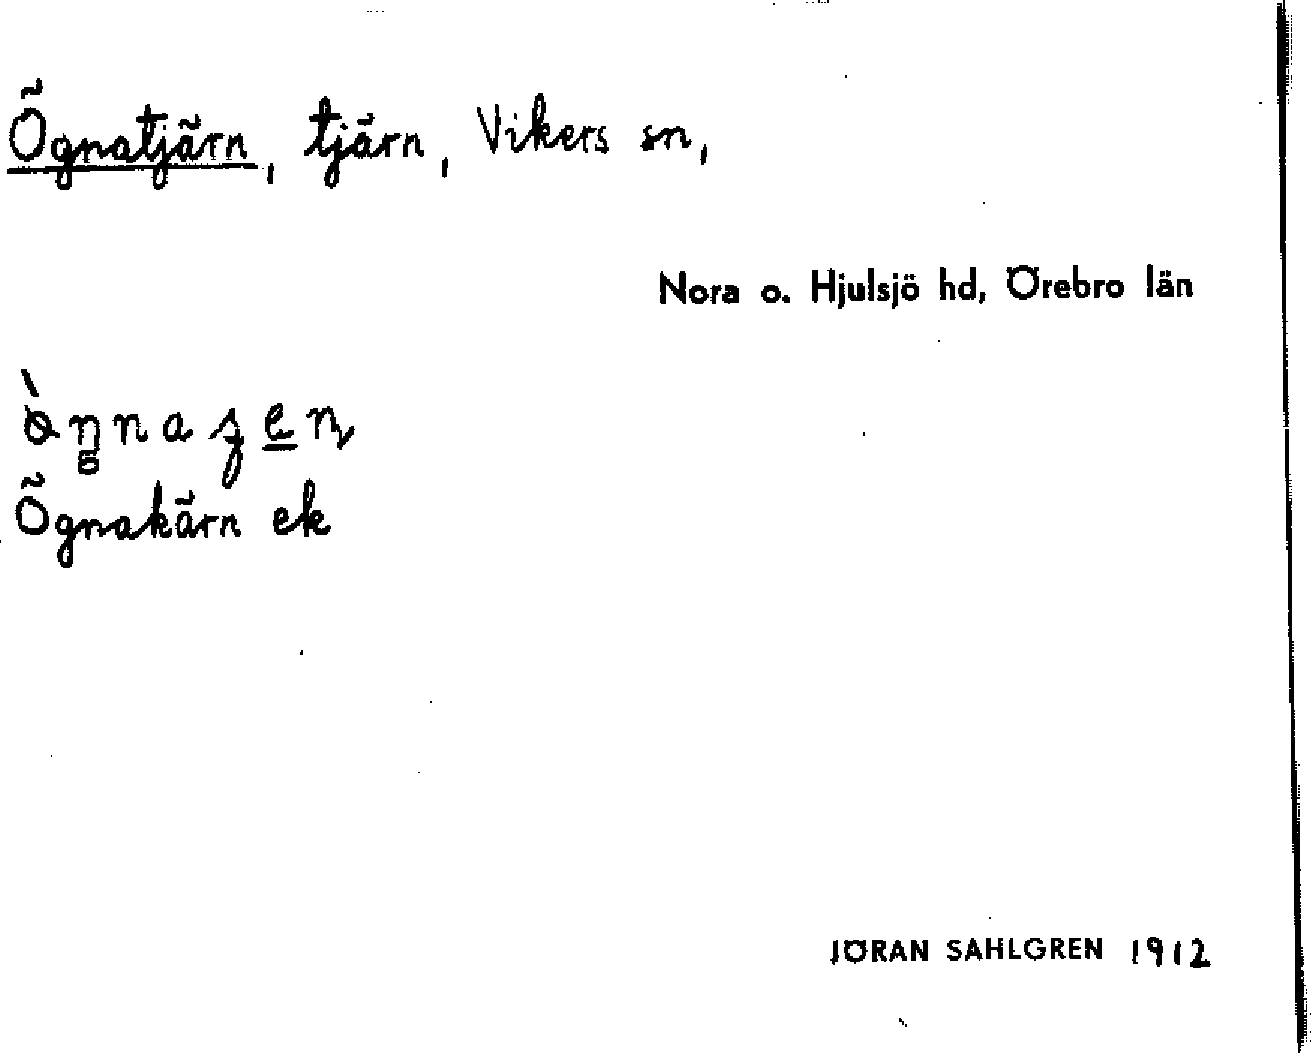 Ögnatjärn, tjärn, Vikers sn,
Nora o. Hjulsjö hd, Örebro län
Ögnakärn ek
JÖRAN SAHLGREN 1912